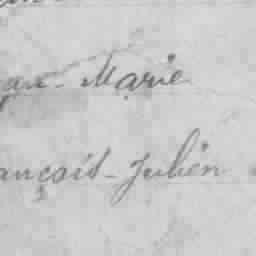 an-Marie
ançois-Julien